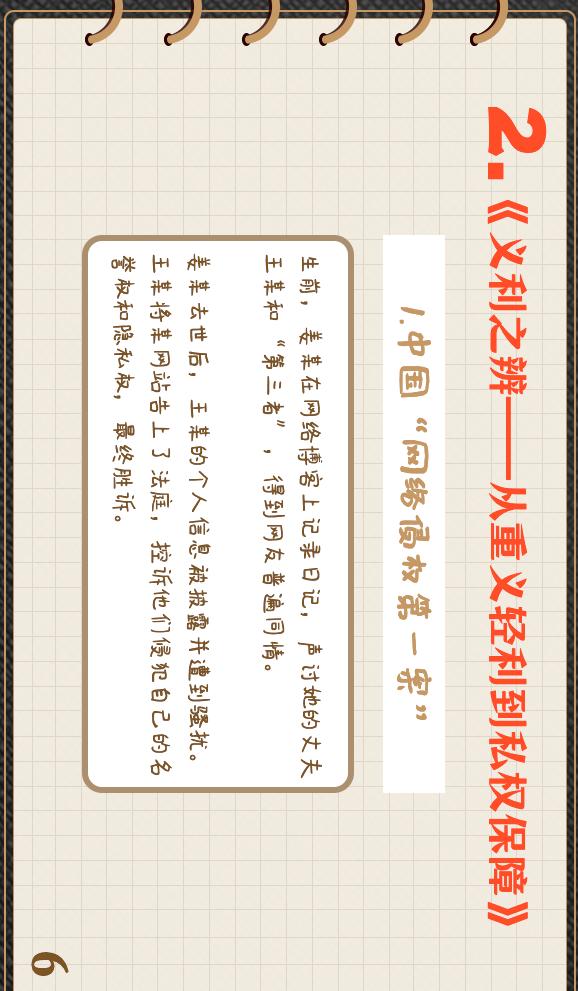 2.《义利之辨——从重义轻利到私权保障》
1.中国“网络侵权第一案”
生前，姜某在网络博客上记录日记，声讨她的丈夫
王某和“第三者”，得到网友普遍同情。
姜某去世后，王某的个人信息被披露并遭到骚扰。
王某将某网站告上了法庭，控诉他们侵犯自己的名
誉权和隐私权，最终胜诉。
6